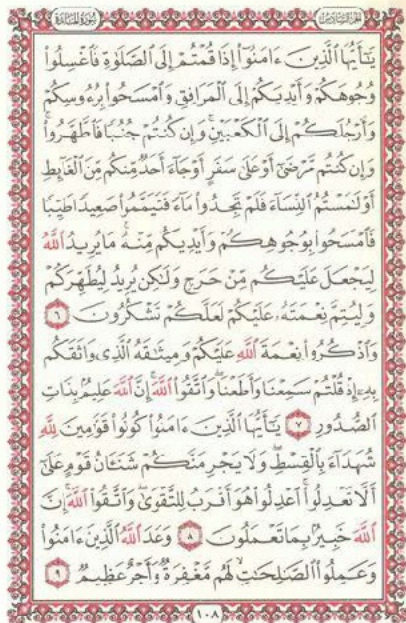 الجزء السادس سورة المائدة
يَـٰٓأَيُّهَا ٱلَّذِينَ ءَامَنُوٓا۟ إِذَا قُمْتُمْ إِلَى ٱلصَّلَوٰةِ فَٱغْسِلُوا۟
وُجُوهَكُمْ وَأَيْدِيَكُمْ إِلَى ٱلْمَرَافِقِ وَٱمْسَحُوا۟ بِرُءُوسِكُمْ
وَأَرْجُلَكُمْ إِلَى ٱلْكَعْبَيْنِ ۚ وَإِن كُنتُمْ جُنُبًا فَٱطَّهَّرُوا۟ ۚ
وَإِن كُنتُم مَّرْضَىٰٓ أَوْ عَلَىٰ سَفَرٍ أَوْ جَآءَ أَحَدٌ مِّنكُم مِّنَ ٱلْغَآئِطِ
أَوْ لَـٰمَسْتُمُ ٱلنِّسَآءَ فَلَمْ تَجِدُوا۟ مَآءً فَتَيَمَّمُوا۟ صَعِيدًا طَيِّبًا
فَٱمْسَحُوا۟ بِوُجُوهِكُمْ وَأَيْدِيكُم مِّنْهُ ۚ مَا يُرِيدُ ٱللَّهُ
لِيَجْعَلَ عَلَيْكُم مِّنْ حَرَجٍ وَلَـٰكِن يُرِيدُ لِيُطَهِّرَكُمْ
وَلِيُتِمَّ نِعْمَتَهُۥ عَلَيْكُمْ لَعَلَّكُمْ تَشْكُرُونَ ٦
وَٱذْكُرُوا۟ نِعْمَةَ ٱللَّهِ عَلَيْكُمْ وَمِيثَـٰقَهُ ٱلَّذِى وَاثَقَكُم
بِهِۦٓ إِذْ قُلْتُمْ سَمِعْنَا وَأَطَعْنَا ۖ وَٱتَّقُوا۟ ٱللَّهَ ۚ إِنَّ ٱللَّهَ عَلِيمٌۢ بِذَاتِ
ٱلصُّدُورِ ٧ يَـٰٓأَيُّهَا ٱلَّذِينَ ءَامَنُوا۟ كُونُوا۟ قَوَّٰمِينَ لِلَّهِ
شُهَدَآءَ بِٱلْقِسْطِ ۖ وَلَا يَجْرِمَنَّكُمْ شَنَـَٔانُ قَوْمٍ عَلَىٰٓ
أَلَّا تَعْدِلُوا۟ ۚ ٱعْدِلُوا۟ هُوَ أَقْرَبُ لِلتَّقْوَىٰ ۖ وَٱتَّقُوا۟ ٱللَّهَ ۚ إِنَّ
ٱللَّهَ خَبِيرٌۢ بِمَا تَعْمَلُونَ ٨ وَعَدَ ٱللَّهُ ٱلَّذِينَ ءَامَنُوا۟
وَعَمِلُوا۟ ٱلصَّـٰلِحَـٰتِ ۙ لَهُم مَّغْفِرَةٌ وَأَجْرٌ عَظِيمٌ ٩
١٠٨